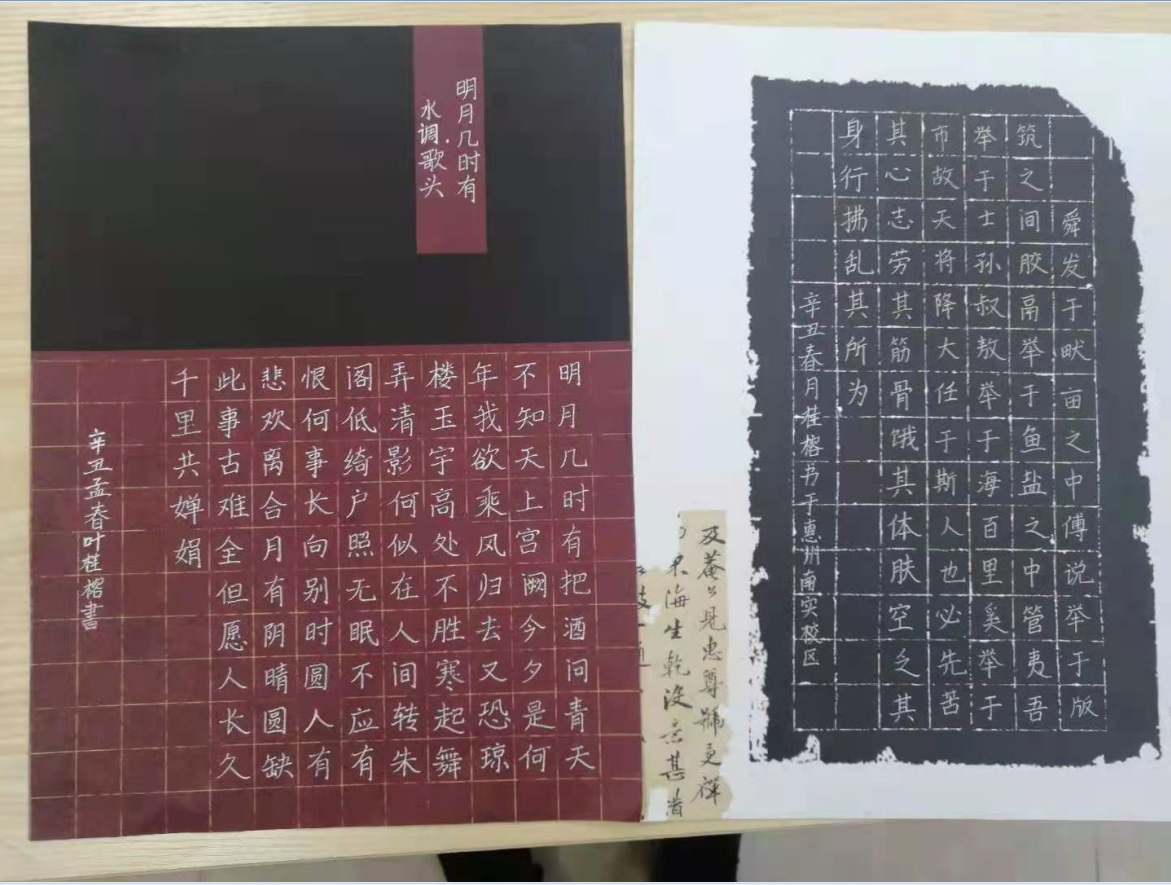 明月几时有
水调·歌头
明月几时有把酒问青天
不知天上宫阙今夕是何
年我欲乘风归去又恐琼
楼玉宇高处不胜寒起舞
弄清影何似在人间转朱
阁低绮户照无眠不应有
恨何事长向别时圆人有
悲欢离合月有阴晴圆缺
此事古难全但愿人长久
千里共婵娟
辛丑孟春叶桂榕書
舜发于畎亩之中傅说举于版
筑之间胶鬲举于鱼盐之中管夷吾
举于士孙叔敖举于海百里奚举于
市故天将降大任于斯人也必先苦
其心志劳其筋骨饿其体肤空乏其
身行拂乱其所为
辛丑春月桂榕书于惠州南实校区
及菴见惠尊號更
海生乾没甚